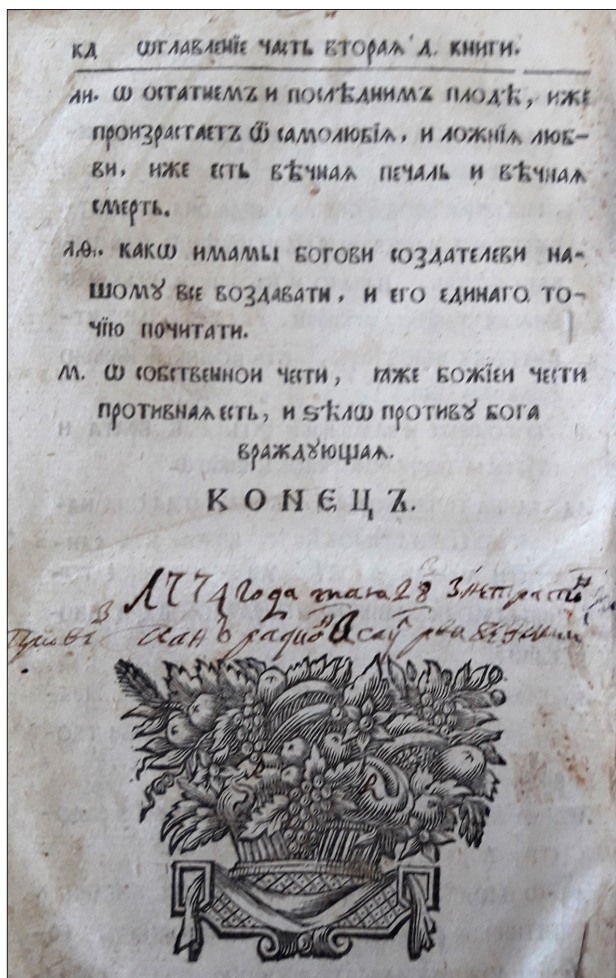 кд ѡглавленїе часть вторая д. книги.
ли. ѡ остатнемъ и послѣднимъ плодѣ, иже
произрастаетъ ѿ самолюбїѧ, и ложнїѧ люб-
ви, иже есть вѣчнаѧ печаль и вѣчнаѧ
смерть.
лѳ. какѡ имамы богови создателеви на-
шомꙋ все воздавати, и его единаго то-
чїю почитати.
м. ѡ собственнои чести, ꙗже божїеи чести
противнаѧ есть, и ѕѣлѡ противꙋ бога
враждꙋющаѧ.
КОНЕЦЪ.
1774 года маиа 28